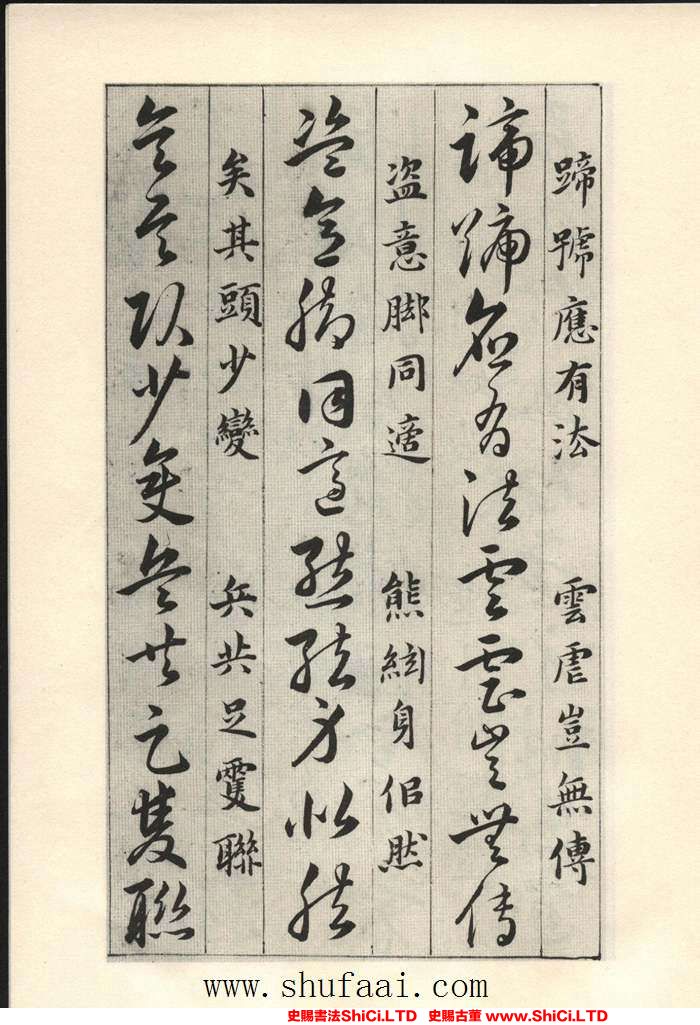 蹄號應有法　雲虐豈無傳
蹄號應有法雲虐豈無傳
盜意脚同適　熊絃身佀然
盜意脚同適熊絃身似然
矣其頭少變　兵共足䨇聯
矣其頭少變兵共足雙聯
www.shufaai.com
史賜書法ShiCi.LTD 史賜古董 www.ShiCi.LTD